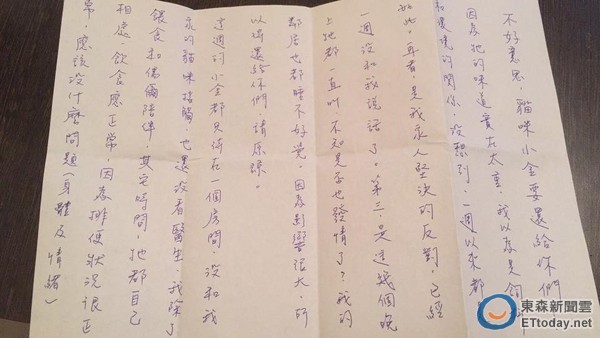 不好意思,貓咪小金要還給你們
因為牠的味道實在太重,我以為是飼
和環境的關係,沒想到,一週以來都
如此。再者,是我家人堅決的反對,已經
一週沒和我說話了。第三,是這幾個晚
上牠都一直叫,不知是否也發情了?我的
鄰居也都睡不好覺,因為影響很大,所
以得還給你們,請原諒。
這週的小金都只待在一個房間,沒和我
家的貓咪接觸,也還沒看醫生,我除了
餵食和偶爾陪伴,其它時間,牠都自己
相處,飲食應正常,因為排便狀況很正
常,應該沒什麼問題(身體及情緒)
東森新聞雲
ETtoday.net